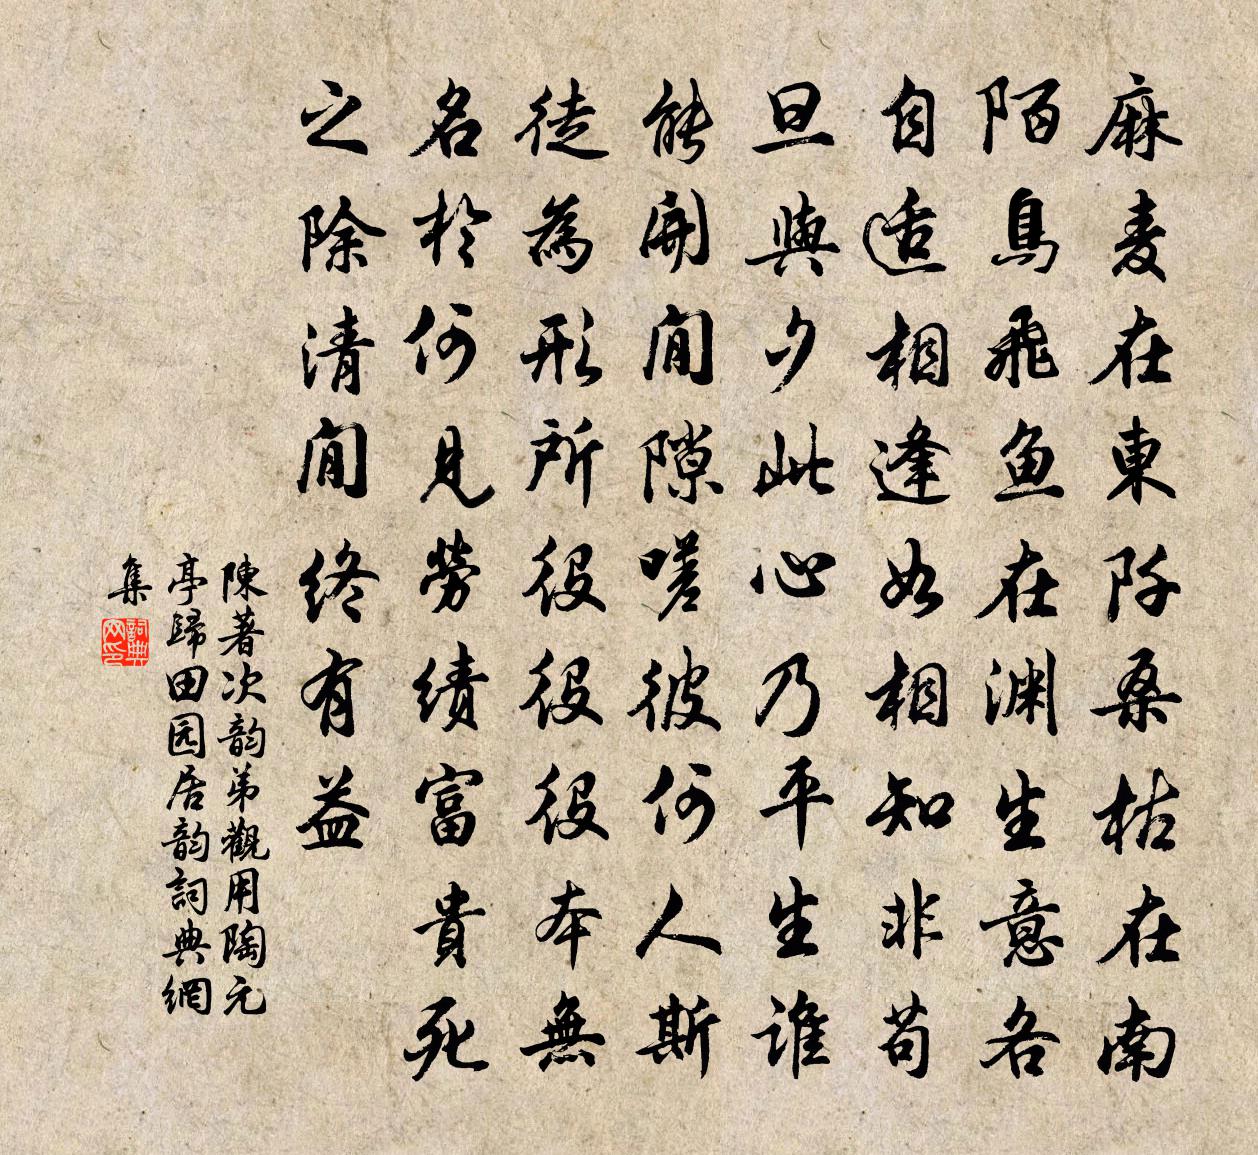 麻麦在東阡桑枯在南
陌鳥飛魚在渊生意各
自适相逢如相知非苟
旦與夕此心乃平生谁
能開閒隙嗟彼何人斯
徒為形所役役役本無
名於何見勞績富貴死
之除清閒终有益
陳著次韵弟觀用陶元
亭歸田园居韵詞典網
集
詞典网印